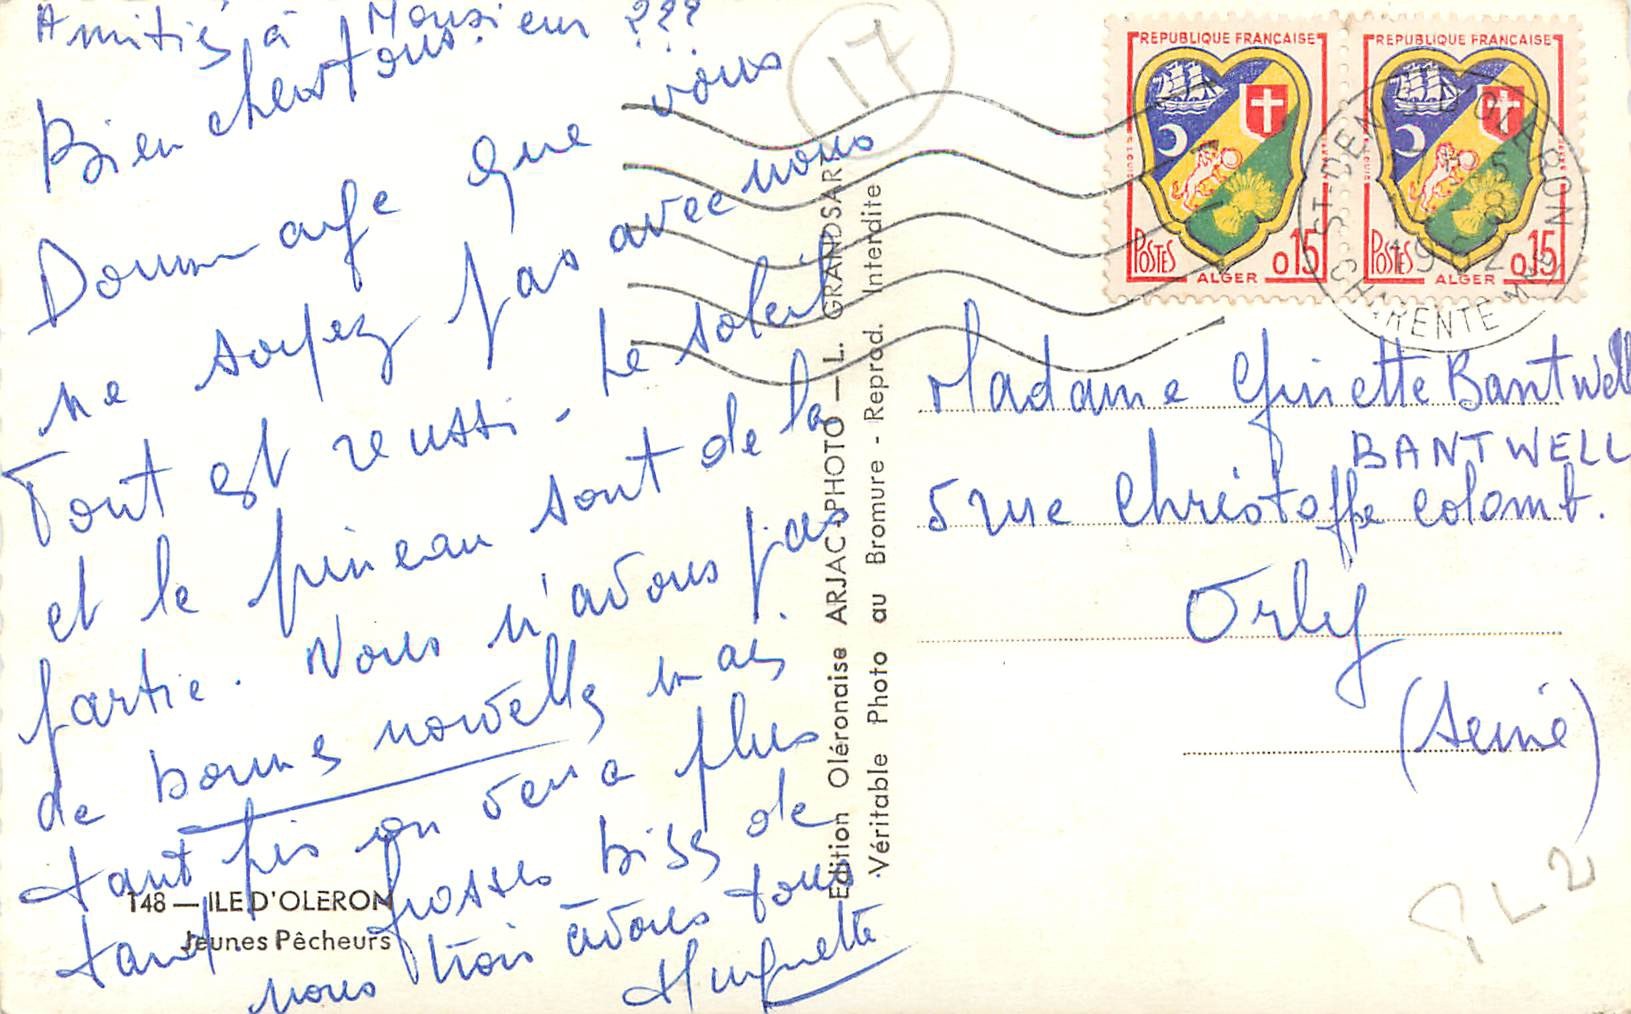 Amitiés à Monsieur ???
Bien chers tous.
Dommage que vous
ne soyez pas avec nous
Tout est reussi - Le soleil
et le pineau sont de la
partie. Nous n'avons pas
de bonnes nouvelles mais
tant pis on verra plus
tard grosses bises de
nous trois à vous tous
Huguette
148 — ILE D'OLERON
Jeunes Pêcheurs
Edition Oléronaise ARJAC-PHOTO — L. GRANDSART
Véritable Photo au Bromure - Reprod. Interdite
17
REPUBLIQUE FRANÇAISE
POSTES ALGER 0.15
REPUBLIQUE FRANÇAISE
POSTES ALGER 0.15
ST-DENIS D'OLERON
1962
CHARENTE MME
Madame Ginette Bantwell
BANTWELL
5 rue Christoffe Colomb.
Orly
(Seine)
PL2